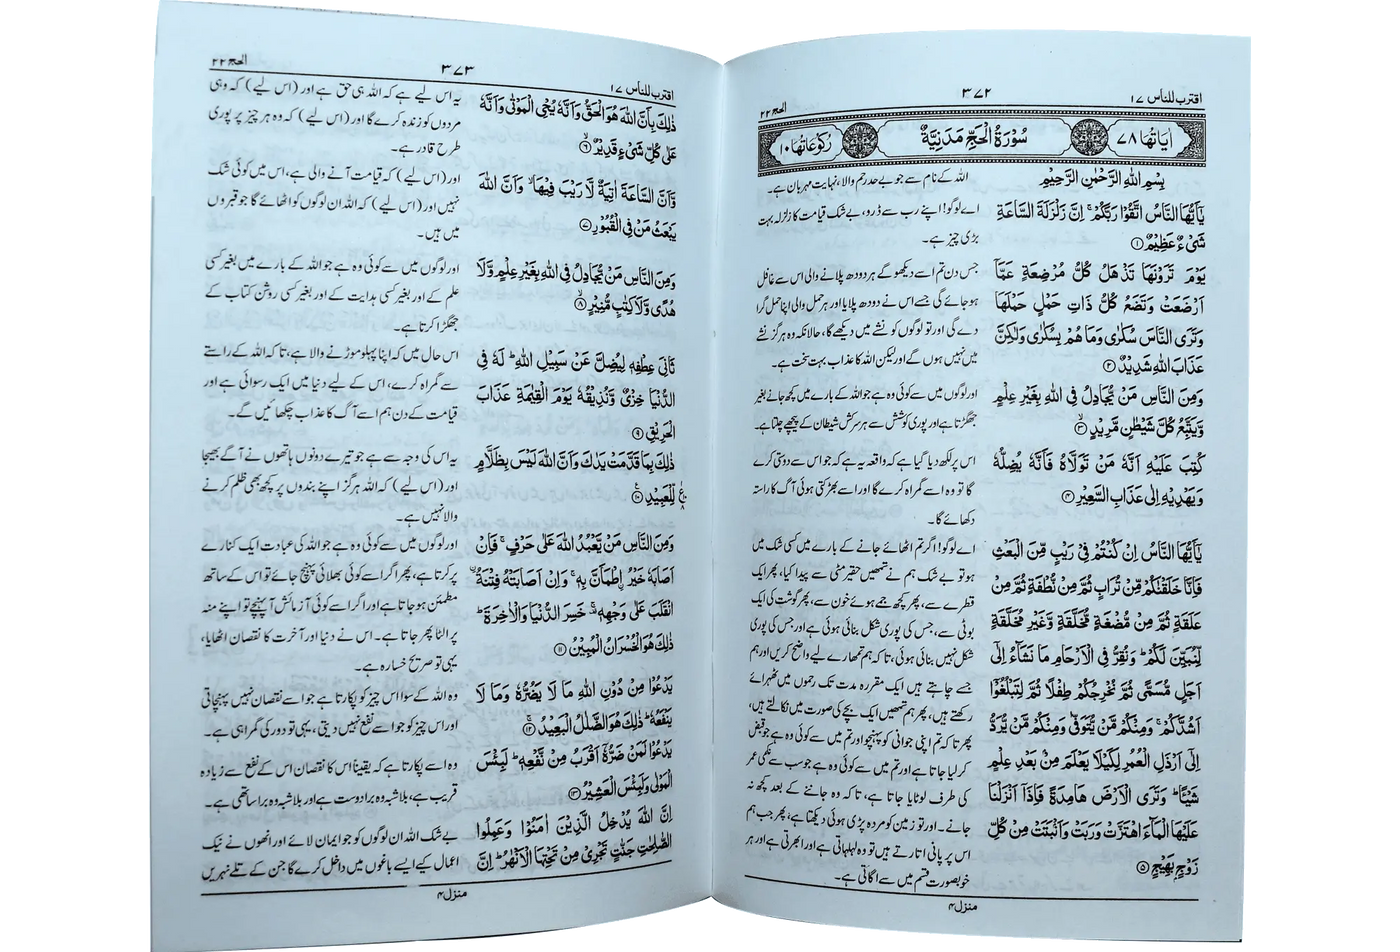 اقترب للناس ۱۷
۳۷۲
الحج ۲۲
اٰیَاتُهَا ۷۸
سُوْرَةُ الْحَجِّ مَدَنِیَّةٌ
رُكُوْعَاتُهَا ۱۰
بِسْمِ اللّٰهِ الرَّحْمٰنِ الرَّحِیْمِ
یٰۤاَیُّهَا النَّاسُ اتَّقُوْا رَبَّكُمْ ۚ اِنَّ زَلْزَلَةَ السَّاعَةِ
شَیْءٌ عَظِیْمٌ ①
یَوْمَ تَرَوْنَهَا تَذْهَلُ كُلُّ مُرْضِعَةٍ عَمَّاۤ
اَرْضَعَتْ وَتَضَعُ كُلُّ ذَاتِ حَمْلٍ حَمْلَهَا
وَتَرَی النَّاسَ سُكٰرٰی وَمَا هُمْ بِسُكٰرٰی وَلٰكِنَّ
عَذَابَ اللّٰهِ شَدِیْدٌ ②
وَمِنَ النَّاسِ مَنْ یُّجَادِلُ فِی اللّٰهِ بِغَیْرِ عِلْمٍ
وَّیَتَّبِعُ كُلَّ شَیْطٰنٍ مَّرِیْدٍ ③
كُتِبَ عَلَیْهِ اَنَّهٗ مَنْ تَوَلَّاهُ فَاَنَّهٗ یُضِلُّهٗ
وَیَهْدِیْهِ اِلٰی عَذَابِ السَّعِیْرِ ④
یٰۤاَیُّهَا النَّاسُ اِنْ كُنْتُمْ فِیْ رَیْبٍ مِّنَ الْبَعْثِ
فَاِنَّا خَلَقْنٰكُمْ مِّنْ تُرَابٍ ثُمَّ مِنْ نُّطْفَةٍ ثُمَّ مِنْ
عَلَقَةٍ ثُمَّ مِنْ مُّضْغَةٍ مُّخَلَّقَةٍ وَّغَیْرِ مُخَلَّقَةٍ
لِّنُبَیِّنَ لَكُمْ ؕ وَنُقِرُّ فِی الْاَرْحَامِ مَا نَشَآءُ اِلٰۤی
اَجَلٍ مُّسَمًّی ثُمَّ نُخْرِجُكُمْ طِفْلًا ثُمَّ لِتَبْلُغُوْۤا
اَشُدَّكُمْ ۚ وَمِنْكُمْ مَّنْ یُّتَوَفّٰی وَمِنْكُمْ مَّنْ یُّرَدُّ
اِلٰۤی اَرْذَلِ الْعُمُرِ لِكَیْلَا یَعْلَمَ مِنْۢ بَعْدِ عِلْمٍ
شَیْـًٔا ؕ وَتَرَی الْاَرْضَ هَامِدَةً فَاِذَاۤ اَنْزَلْنَا
عَلَیْهَا الْمَآءَ اهْتَزَّتْ وَرَبَتْ وَاَنْۢبَتَتْ مِنْ كُلِّ
زَوْجٍۭ بَهِیْجٍ ⑤
اللہ کے نام سے جو بے حد رحم والا، نہایت مہربان ہے۔
اے لوگو! اپنے رب سے ڈرو، بے شک قیامت کا زلزلہ بہت
بڑی چیز ہے۔
جس دن تم اسے دیکھو گے ہر دودھ پلانے والی اس سے غافل
ہو جائے گی جسے اس نے دودھ پلایا اور ہر حمل والی اپنا حمل گرا
دے گی اور تو لوگوں کو نشے میں دیکھے گا، حالانکہ وہ ہرگز نشے
میں نہیں ہوں گے اور لیکن اللہ کا عذاب بہت سخت ہے۔
اور لوگوں میں سے کوئی وہ ہے جو اللہ کے بارے میں کچھ جانے بغیر
جھگڑتا ہے اور پوری کوشش سے ہر سرکش شیطان کے پیچھے چلتا ہے۔
اس پر لکھ دیا گیا ہے کہ واقعہ یہ ہے کہ جو اس سے دوستی کرے
گا تو وہ اسے گمراہ کرے گا اور اسے بھڑکتی ہوئی آگ کا راستہ
دکھائے گا۔
اے لوگو! اگر تم اٹھائے جانے کے بارے میں کسی شک میں
ہو تو بے شک ہم نے تمھیں حقیر مٹی سے پیدا کیا، پھر ایک
قطرے سے، پھر کچھ جمے ہوئے خون سے، پھر گوشت کی ایک
بوٹی سے، جس کی پوری شکل بنائی ہوئی ہے اور جس کی پوری
شکل نہیں بنائی ہوئی، تاکہ ہم تمھارے لیے واضح کریں اور ہم
جسے چاہتے ہیں ایک مقررہ مدت تک رحموں میں ٹھہرائے
رکھتے ہیں، پھر ہم تمھیں ایک بچے کی صورت میں نکالتے ہیں،
پھر تاکہ تم اپنی جوانی کو پہنچو اور تم میں سے کوئی وہ ہے جو قبض
کر لیا جاتا ہے اور تم میں سے کوئی وہ ہے جو سب سے نکمی عمر
کی طرف لوٹایا جاتا ہے، تاکہ وہ جاننے کے بعد کچھ نہ
جانے۔ اور تو زمین کو مردہ پڑی ہوئی دیکھتا ہے، پھر جب ہم
اس پر پانی اتارتے ہیں تو وہ لہلہاتی ہے اور ابھرتی ہے اور ہر
خوبصورت قسم میں سے اگاتی ہے۔
منزل ۴
اقترب للناس ۱۷
۳۷۳
الحج ۲۲
ذٰلِكَ بِاَنَّ اللّٰهَ هُوَ الْحَقُّ وَاَنَّهٗ یُحْیِ الْمَوْتٰی وَاَنَّهٗ
عَلٰی كُلِّ شَیْءٍ قَدِیْرٌ ⑥
وَّاَنَّ السَّاعَةَ اٰتِیَةٌ لَّا رَیْبَ فِیْهَا ۙ وَاَنَّ اللّٰهَ
یَبْعَثُ مَنْ فِی الْقُبُوْرِ ⑦
وَمِنَ النَّاسِ مَنْ یُّجَادِلُ فِی اللّٰهِ بِغَیْرِ عِلْمٍ وَّلَا
هُدًی وَّلَا كِتٰبٍ مُّنِیْرٍ ⑧
ثَانِیَ عِطْفِهٖ لِیُضِلَّ عَنْ سَبِیْلِ اللّٰهِ ؕ لَهٗ فِی
الدُّنْیَا خِزْیٌ وَّنُذِیْقُهٗ یَوْمَ الْقِیٰمَةِ عَذَابَ
الْحَرِیْقِ ⑨
ذٰلِكَ بِمَا قَدَّمَتْ یَدٰكَ وَاَنَّ اللّٰهَ لَیْسَ بِظَلَّامٍ
لِّلْعَبِیْدِ ⑩
وَمِنَ النَّاسِ مَنْ یَّعْبُدُ اللّٰهَ عَلٰی حَرْفٍ ۚ فَاِنْ
اَصَابَهٗ خَیْرُ اِۨطْمَاَنَّ بِهٖ ۚ وَاِنْ اَصَابَتْهُ فِتْنَةُ ۨ
انْقَلَبَ عَلٰی وَجْهِهٖ ۚ خَسِرَ الدُّنْیَا وَالْاٰخِرَةَ ؕ
ذٰلِكَ هُوَ الْخُسْرَانُ الْمُبِیْنُ ⑪
یَدْعُوْا مِنْ دُوْنِ اللّٰهِ مَا لَا یَضُرُّهٗ وَمَا لَا
یَنْفَعُهٗ ؕ ذٰلِكَ هُوَ الضَّلٰلُ الْبَعِیْدُ ⑫
یَدْعُوْا لَمَنْ ضَرُّهٗۤ اَقْرَبُ مِنْ نَّفْعِهٖ ؕ لَبِئْسَ
الْمَوْلٰی وَلَبِئْسَ الْعَشِیْرُ ⑬
اِنَّ اللّٰهَ یُدْخِلُ الَّذِیْنَ اٰمَنُوْا وَعَمِلُوا
الصّٰلِحٰتِ جَنّٰتٍ تَجْرِیْ مِنْ تَحْتِهَا الْاَنْهٰرُ ؕ اِنَّ
یہ اس لیے ہے کہ اللہ ہی حق ہے اور (اس لیے) کہ وہی
مردوں کو زندہ کرے گا اور (اس لیے) کہ وہ ہر چیز پر پوری
طرح قادر ہے۔
اور (اس لیے) کہ قیامت آنے والی ہے، اس میں کوئی شک
نہیں اور (اس لیے) کہ اللہ ان لوگوں کو اٹھائے گا جو قبروں
میں ہیں۔
اور لوگوں میں سے کوئی وہ ہے جو اللہ کے بارے میں بغیر کسی
علم کے اور بغیر کسی ہدایت کے اور بغیر کسی روشن کتاب کے
جھگڑا کرتا ہے۔
اس حال میں کہ اپنا پہلو موڑنے والا ہے، تاکہ اللہ کے راستے
سے گمراہ کرے، اس کے لیے دنیا میں ایک رسوائی ہے اور
قیامت کے دن ہم اسے آگ کا عذاب چکھائیں گے۔
یہ اس کی وجہ سے ہے جو تیرے دونوں ہاتھوں نے آگے بھیجا
اور (اس لیے) کہ اللہ ہرگز اپنے بندوں پر کچھ بھی ظلم کرنے
والا نہیں ہے۔
اور لوگوں میں سے کوئی وہ ہے جو اللہ کی عبادت ایک کنارے
پر کرتا ہے، پھر اگر اسے کوئی بھلائی پہنچ جائے تو اس کے ساتھ
مطمئن ہو جاتا ہے اور اگر اسے کوئی آزمائش آ پہنچے تو اپنے منہ
پر الٹا پھر جاتا ہے۔ اس نے دنیا اور آخرت کا نقصان اٹھایا،
یہی تو صریح خسارہ ہے۔
وہ اللہ کے سوا اس چیز کو پکارتا ہے جو اسے نقصان نہیں پہنچاتی
اور اس چیز کو جو اسے نفع نہیں دیتی، یہی تو دور کی گمراہی ہے۔
وہ اسے پکارتا ہے کہ یقیناً اس کا نقصان اس کے نفع سے زیادہ
قریب ہے، بلاشبہ وہ برا دوست ہے اور بلاشبہ وہ برا ساتھی ہے۔
بے شک اللہ ان لوگوں کو جو ایمان لائے اور انھوں نے نیک
اعمال کیے ایسے باغوں میں داخل کرے گا جن کے تلے نہریں
منزل ۴